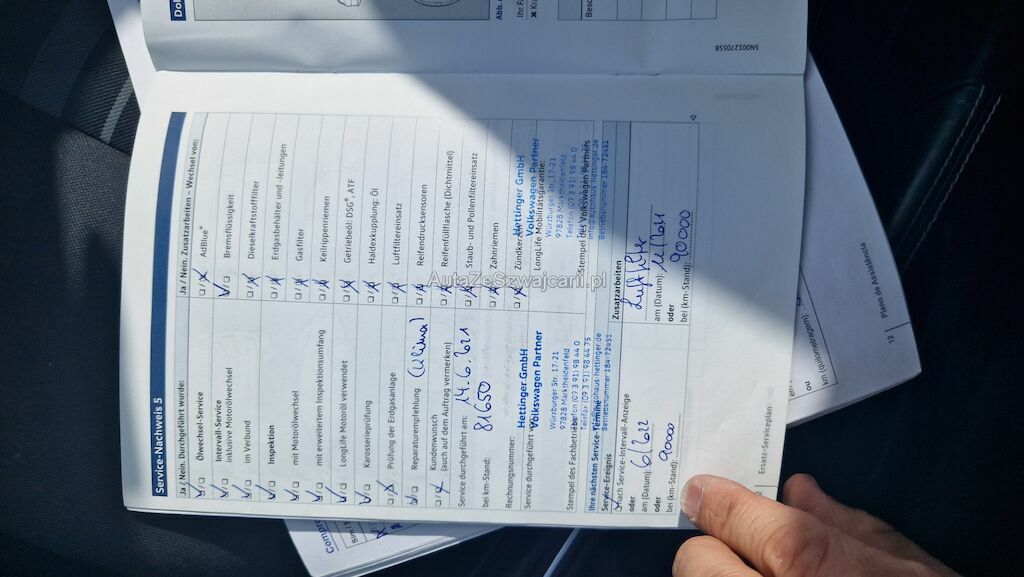 Service-Nachweis 5
Ja / Nein. Durchgeführt wurde:
Ölwechsel-Service
Intervall-Service
inklusive Motorölwechsel
im Verbund
Inspektion
mit Motorölwechsel
mit erweitertem Inspektionsumfang
LongLife Motoröl verwendet
Karosserieprüfung
Prüfung der Erdgasanlage
Reparaturempfehlung (Klima)
Kundenwunsch
(auch auf dem Auftrag vermerken)
Service durchgeführt am: 14.6.2021
bei km-Stand: 81650
Rechnungsnummer:
Service durchgeführt
Hettinger GmbH
Volkswagen Partner
Würzburger Str. 17-21
97828 Marktheidenfeld
Telefon (0 93 91) 98 44 0
Telefax (0 93 91) 98 44 75
Betriebsnummer 184-72451
Stempel des Fachbetriebs
Ja / Nein. Zusatzarbeiten – Wechsel von:
AdBlue®
Bremsflüssigkeit
Dieselkraftstofffilter
Erdgasbehälter und -leitungen
Gasfilter
Keilrippenriemen
Getriebeöl: DSG®, ATF
Haldexkupplung: Öl
Luftfiltereinsatz
Reifendrucksensoren
Reifenfüllflasche (Dichtmittel)
Staub- und Pollenfiltereinsatz
Zahnriemen
Zündkerzen
LongLife Mobilitätsgarantie:
Hettinger GmbH
Volkswagen Partner
Würzburger Str. 17-21
97828 Marktheidenfeld
Telefon (0 93 91) 98 44 0
info@autohaus-hettinger.de
Betriebsnummer 184-72451
Stempel des Volkswagen Partners
Ihre nächsten Service-Termine
Service-Ereignis
nach Service-Intervall-Anzeige
oder
am (Datum): 6/2022
oder
bei (km-Stand): 90000
Zusatzarbeiten
am (Datum):
oder
bei (km-Stand): 90000
Ersatz-Serviceplan
5N0012705SB
12 | Plano de Assistência
ou
em (quilometragem)
Abb.
AutaZeSzwajcarii.pl